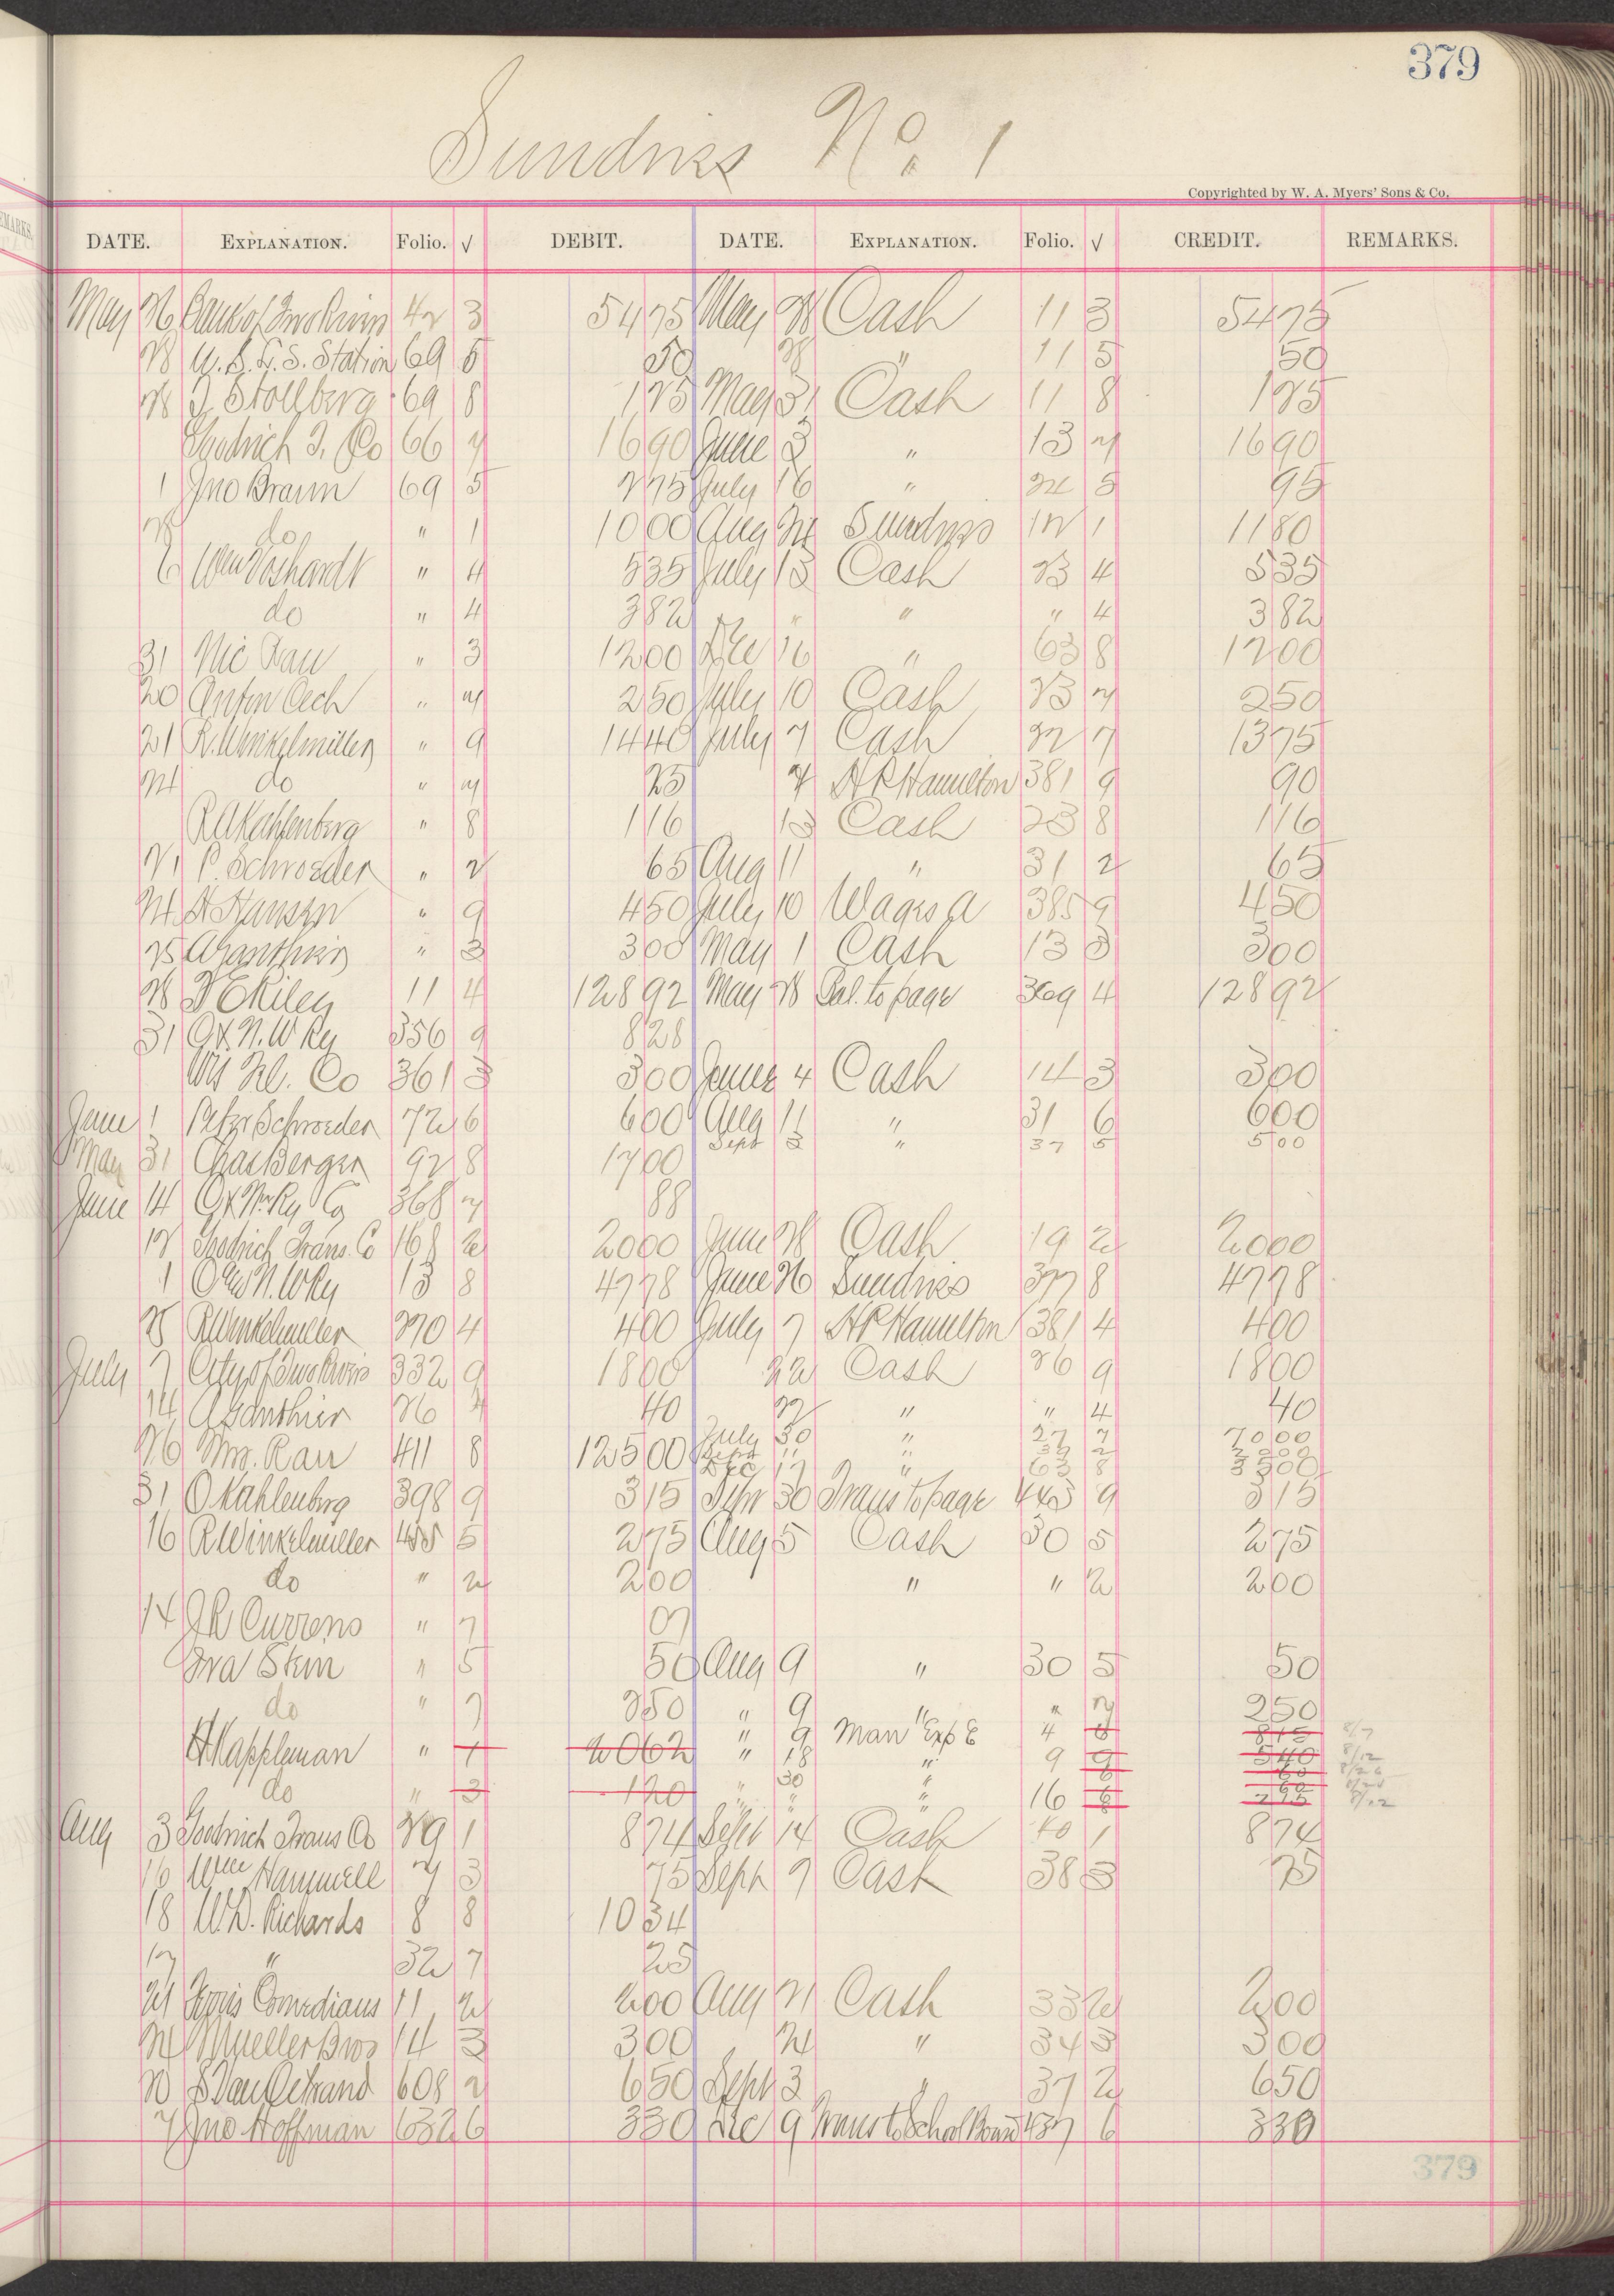 379
Sundries No. 1
Copyrighted by W. A. Myers' Sons & Co.
DATE. EXPLANATION. Folio. √ DEBIT. DATE. EXPLANATION. Folio. √ CREDIT. REMARKS.
May 26 Bank of Two Rivers 42 3 54 75 May 28 Cash 11 3 54 75
28 U. S. L. S. Station 69 5 50 28 " 11 5 50
28 J Stollberg 69 8 1 25 May 31 Cash 11 8 1 25
Goodrich T. Co 66 7 16 90 June 3 " 13 7 16 90
1 Jno Braun 69 5 2 75 July 16 " 24 5 95
28 do " 1 10 00 Aug 24 Sundries 12 1 11 80
6 Wm Voshardt " 4 5 35 July 13 Cash 23 4 5 35
do " 4 3 82 " " " 4 3 82
31 Nic Rau " 3 12 00 Dec 16 " 63 8 12 00
20 Anton Cech " 7 2 50 July 10 Cash 23 7 2 50
21 R. Winkelmiller " 9 14 40 July 7 Cash 22 7 13 75
24 do " 7 25 7 H P Hamilton 381 9 90
R A Kahlenberg " 8 1 16 13 Cash 23 8 1 16
21 P. Schroeder " 2 65 Aug 11 " 31 2 65
24 H Hansen " 9 4 50 July 10 Wages a 385 9 4 50
25 A Gauthier " 3 3 00 May 1 Cash 13 3 3 00
28 F E Riley 11 4 128 92 May 28 Bal. to page 369 4 128 92
31 C & N. W Ry 356 9 8 28
Wis Tel. Co 361 3 3 00 June 4 Cash 14 3 3 00
June 1 Peter Schroeder 72 6 6 00 Aug 11 " 31 6 6 00
Sept 3 " 37 5 5 00
May 31 Chas Berger 92 8 17 00
June 14 C & N W Ry Co 368 7 88
12 Goodrich Trans. Co 168 2 20 00 June 28 Cash 19 2 20 00
1 C & N. W Ry 13 8 47 78 June 26 Sundries 377 8 47 78
25 R Winkelmiller 270 4 4 00 July 7 H P Hamilton 381 4 4 00
July 7 City of Two Rivers 332 9 18 00 22 Cash 26 9 18 00
14 A Gauthier 26 4 40 22 " " 4 40
July 30 " 27 7 70 00
26 Mrs. Rau 411 8 125 00 Sept 11 " 39 2 20 00
Dec 17 " 63 8 35 00
31 O Kahlenberg 398 9 3 15 Sept 30 Trans to page 443 9 3 15
16 R Winkelmiller 455 5 2 75 Aug 5 Cash 30 5 2 75
do " 2 2 00 " " 2 2 00
14 J R Currens " 7 07
Ira Stein " 5 50 Aug 9 " 30 5 50
do " 7 2 50 " 9 " " 7 2 50
" 9 Man Exp E 4 8 15 8/7
H Kappleman " 1 20 62 " 18 " 9 9 5 40 8/12
do " 3 1 20 " 30 " 6 60
" " " 16 8/12
Aug 3 Goodrich Trans Co 29 1 8 74 Sept 14 Cash 40 1 8 74
16 Wm Hammell 7 3 75 Sept 7 Cash 38 3 75
18 W. D. Richards 8 8 10 34
17 " 32 7 25
21 Comedians 11 2 2 00 Aug 21 Cash 33 2 2 00
24 Mueller Bros 14 3 3 00 24 " 34 3 3 00
20 S Van Ostrand 608 2 6 50 Sept 3 " 37 2 6 50
7 Jno Hoffman 632 6 3 30 Dec 9 Trans to School Board 437 6 3 30
379